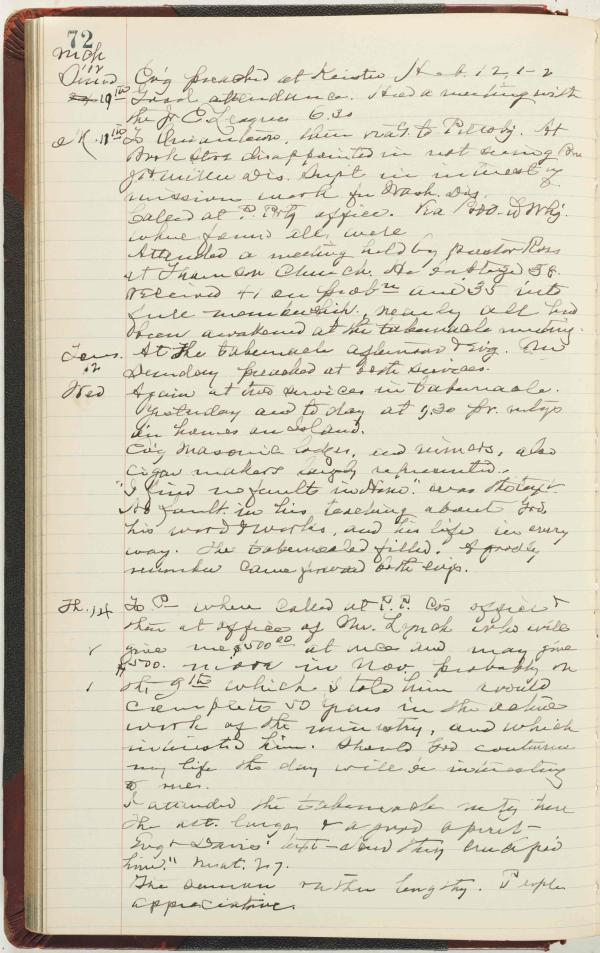 72
Mch
'12
Evg preached at Heb. 12, 1-2
10th Good attendance. Had a meeting with
the Jr. E. Leagues 6.30
11th To then ret. to Pittsbg. At
Book Store disappointed in not seeing Bro
Miller Dis. Supt in interest of
mission work for Wash. Dis.
Called at P. office. Via B&O. to Whg.
where found all well
Attended a meeting held by pastor Ross
at Thomson Church. He enrolled 38
Received 41 on prob'n and 35 into
full membership, nearly all had
been awakened at the tabernacle meeting.
Tues. At the tabernacle afternoon & Evg. Mr
12 Sunday preached at both services.
Wed Again at two services in tabernacle.
Yesterday and to day at 9.30 pr. mtgs
in homes on Island.
Evg Masonic lodges, and miners, also
cigar makers largely represented.
"I find no fault in Him." was the text
No fault in his teaching about God,
his word & works, and his life in every
way. The tabernacle filled. A goodly
number came forward both evgs.
Th. 14 To P— where called at P. P. Co's office &
then at office of Mr. Lynch who will
give me $500.00 at once and may give
$500. more in Nov, probably on
the 9th which I told him would
complete 50 years in the active
work of the ministry, and which
interested him. Should God continue
my life the day will be interesting
to me.
I attended the tabernacle mtg here
The att. large & a good spirit—
Evgt Davis' text— "And they crucified
him." Mat. 27.
The sermon rather lengthy. People
appreciative.